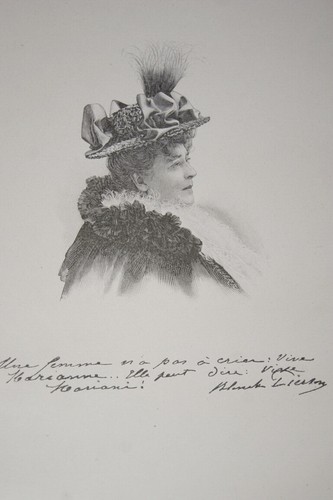 Une femme n'a pas à crier: Vive
Marianne.. Elle peut dire: Vive
Mariani!
Blanche Pierson